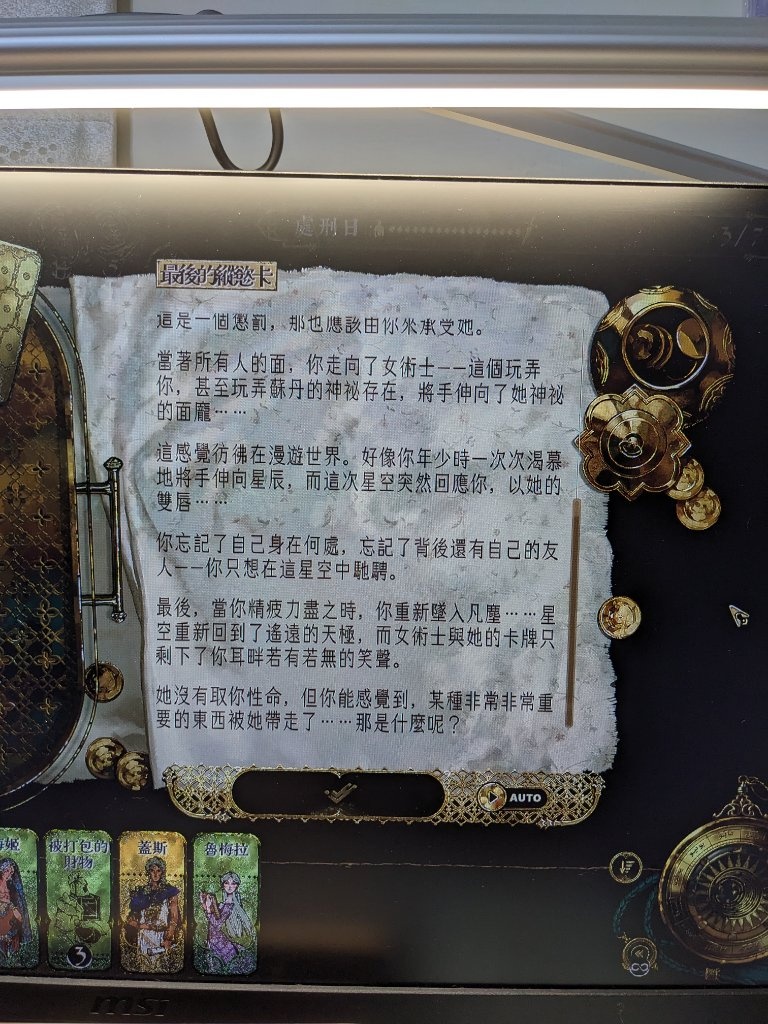 處刑日
3/7
最後的縱慾卡
這是一個懲罰，那也應該由你來承受她。
當著所有人的面，你走向了女術士——這個玩弄
你，甚至玩弄蘇丹的神祕存在，將手伸向了她神祕
的面龐……
這感覺彷彿在漫遊世界。好像你年少時一次次渴慕
地將手伸向星辰，而這次星空突然回應你，以她的
雙唇……
你忘記了自己身在何處，忘記了背後還有自己的友
人——你只想在這星空中馳騁。
最後，當你精疲力盡之時，你重新墜入凡塵……星
空重新回到了遙遠的天極，而女術士與她的卡牌只
剩下了你耳畔若有若無的笑聲。
她沒有取你性命，但你能感覺到，某種非常非常重
要的東西被她帶走了……那是什麼呢？
AUTO
姬
被打包的
財物
3
蓋斯
魯梅拉
msi